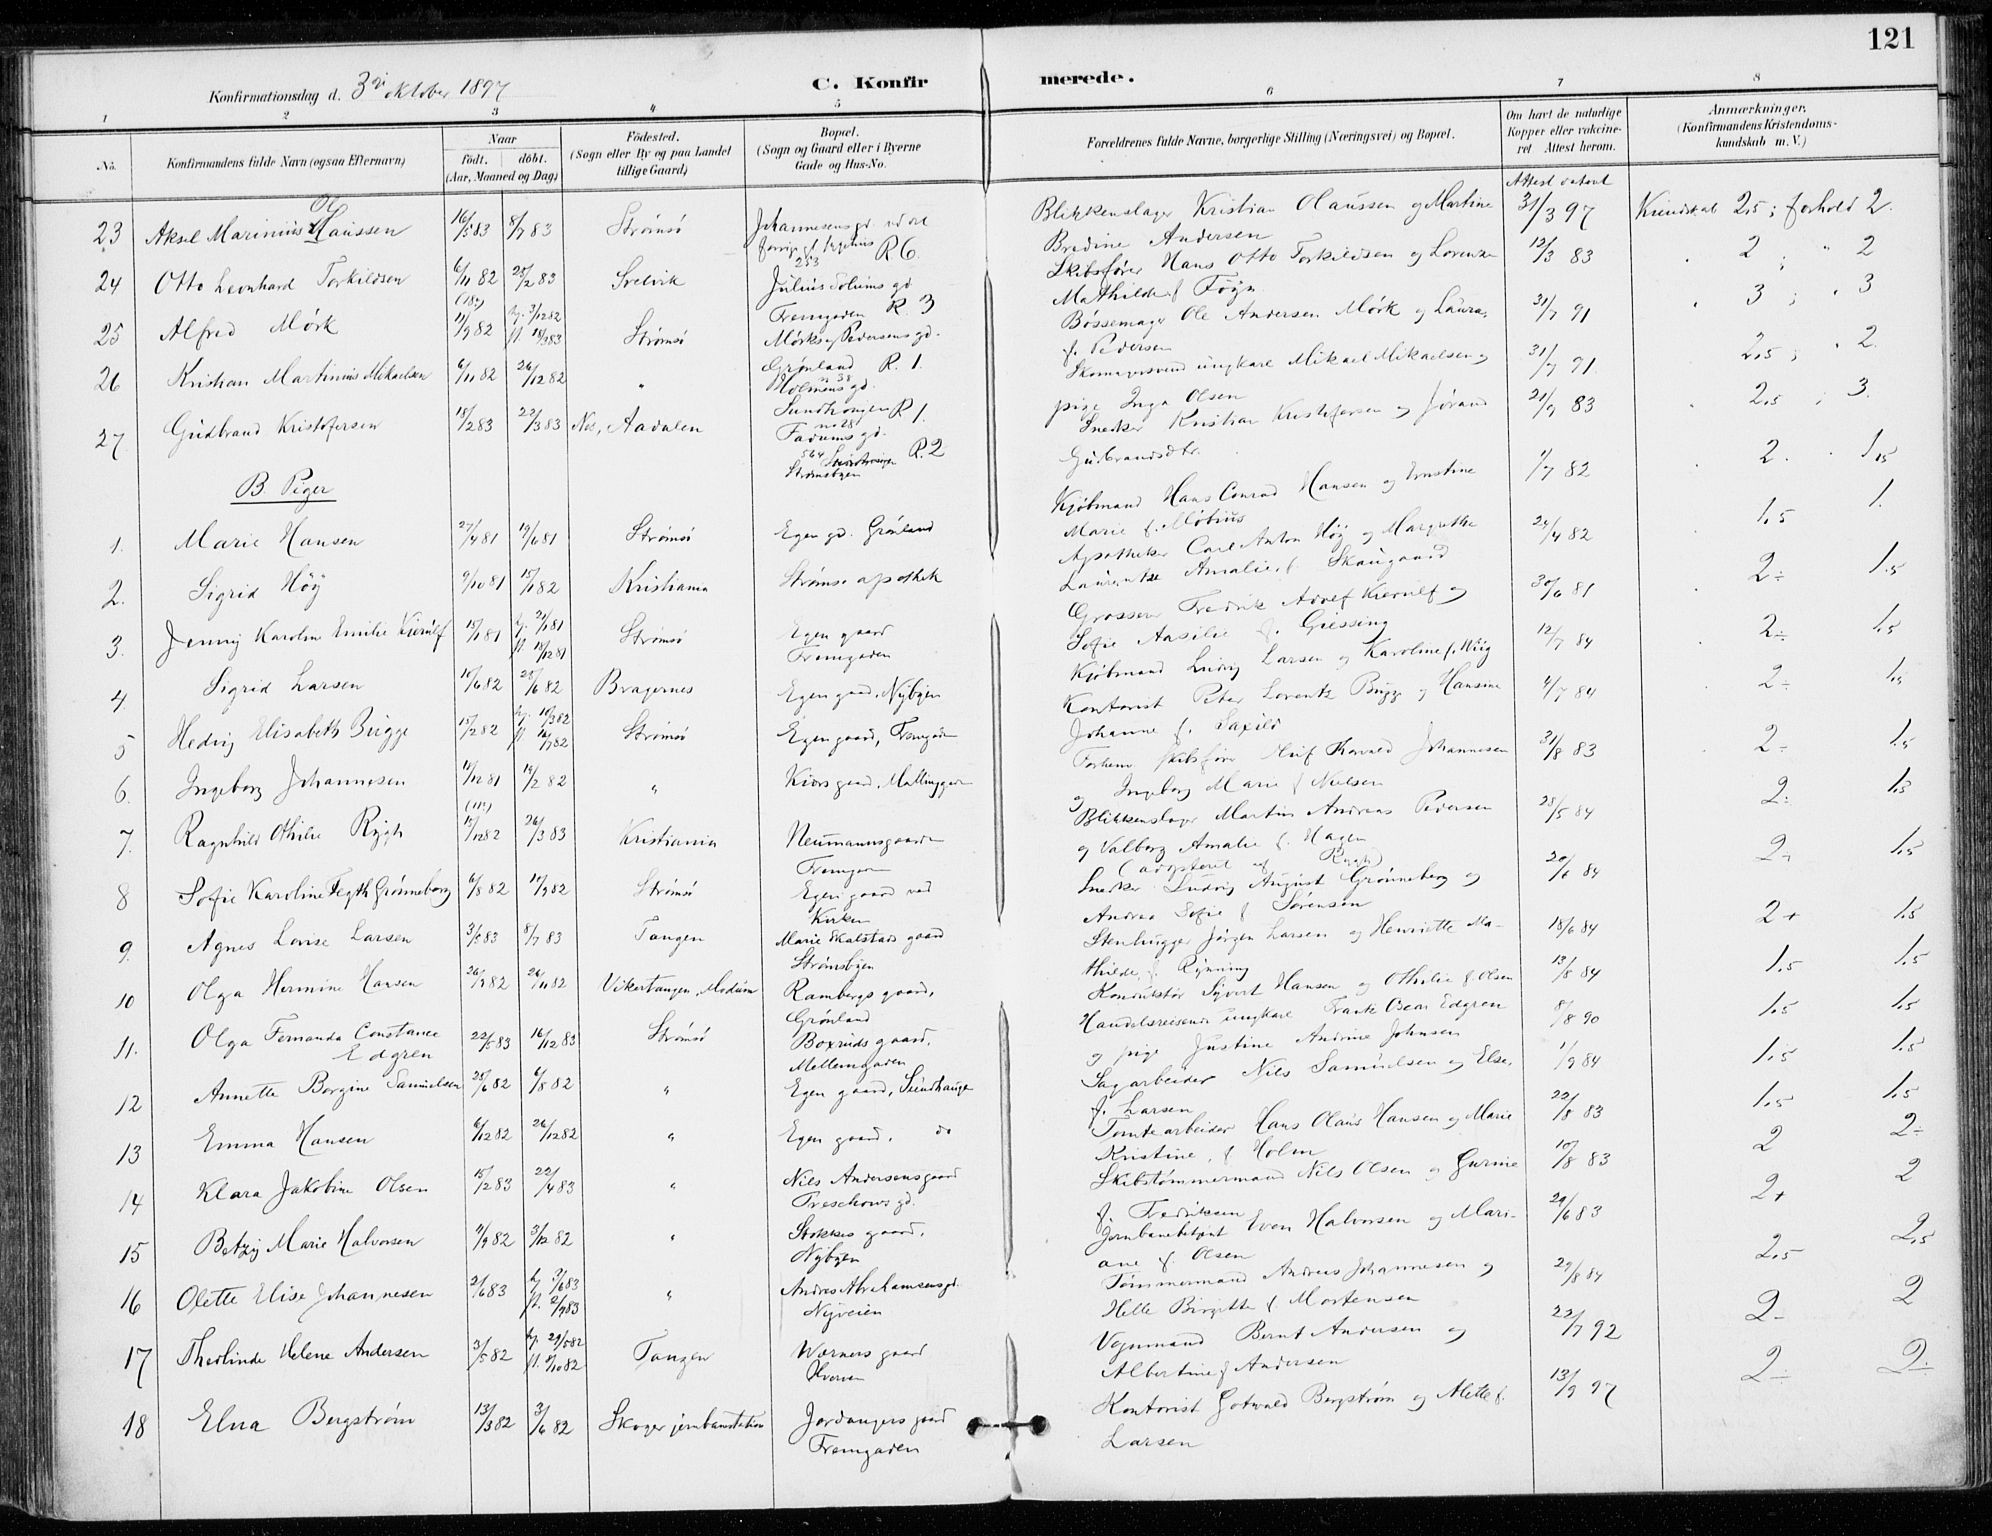 121
Konfirmationsdag d. 3die oktober 1897
C. Konfirmerede.
1 2 3 4 5 6 7 8
No.
Konfirmandens fulde Navn (ogsaa Efternavn)
Naar
født. døbt.
(Aar, Maaned og Dag)
Fødested.
(Sogn eller By og paa Landet
tillige Gaard)
Bopæl.
(Sogn og Gaard eller i Byerne
Gade og Hus-No.
Forældrenes fulde Navne, borgerlige Stilling (Næringsvei) og Bopæl.
Om havt de naturlige
Kopper eller vakcine-
ret. Attest herom.
Anmærkninger.
(Konfirmandens Kristendoms-
kundskab m. V.)
23 Aksel Marinius Olaussen 16/5 83 8/7 83 Strømsø Johannesens gd. R 6. Blikkenslager Kristian Olaussen og Martine Bredine Andersen Attest datert 31/3 97 Kundskab 2,5; forhold 2.
24 Otto Leonhard Torkildsen 6/11 82 25/2 83 Svelvik 253 Julius Soliums gd Tremgaden R. 3 Skibsfører Hans Otto Torkildsen og Lorenze Mathilde f. Føyn 12/3 83 2 ; " 2
25 Alfred Mørk 11/9 82 hj. 3/12 82 fl. 18/3 83 Strømsø Mørks og Pedersens gd. Grønland R. 1. Bøssemager Ole Andersen Mørk og Laura f. Pedersen 31/7 91 3 ; " 3
26 Kristian Martinius Mikaelsen 6/11 82 26/12 82 " n 38 Holmens gd. Sundhaugen R 1. Skomagersvend ungkarl Mikael Mikaelsen og pige Inga Olsen 31/7 91 2,5 ; " 2.
27 Gudbrand Kristofersen 18/2 83 23/3 83 Nes, Aadalen no 281 Fadums gd. 564 Strømsbyen R. 2 Snedker Kristian Kristofersen og Jørand Gudbrandsdtr. 21/9 83 2,5 ; 3.
B. Piger
1. Marie Hansen 27/4 81 19/6 81 Strømsø Egen gd. Grønland Kjøbmand Hans Conrad Hansen og Ernstine Marie f. Møbius 1/7 82 2. " 1,5
2. Sigrid Höy 9/10 81 15/1 82 Kristiania Strømsø apothek Apotheker Carl Anton Höy og Margrethe Laurentze Amalie f. Skaugaard 24/4 82 1,5 1.
3. Jenny Karoline Emilie Kierulf 15/1 81 hj. 21/1 81 fl. 18/12 81 Strømsø Egen gaard Tremgaden Grosserer Fredrik Adolf Kierulf og Sofie Aasilie f. Giessing 30/6 81 2÷ 1,5
4. Sigrid Larsen 10/6 82 25/6 82 Bragernes Egen gaard, Nybyen Kjøbmand Ludvig Larsen og Karoline f. Hiig 12/7 84 2÷ 1,5
5 Hedvig Elisabeth Bugge 15/2 82 hj. 10/3 82 fl. 16/7 82 Strømsø Egen gaard, Tremgaden Kontorist Peter Lorentz Bugge og Hansine Johanne f. Saxild 4/7 84 2÷ 1,5
6. Ingeborg Johannesen 11/12 81 19/2 82 " Kiøsgaard, Mallinggaden Forhenv. skibsfører Leif Harald Johannesen og Ingeborg Marie f. Nielsen 31/8 83 2- 1,5
7. Ragnhild Othilie Rygh 15/12 82 26/3 83 Kristiania Neumannsgaarden Tremgaden Blikkenslager Martin Andreas Pedersen og Valborg Amalie f. Hagen (adopteret af Rygh) 28/5 84 2- 1,5
8 Sofie Karoline Tegth Grønneberg 6/8 82 17/9 82 Strømsø Egen gaard ved Kirken Snedker Ludvig August Grønneberg og Andrea Sofie f. Sørensen 20/6 84 2- 1,5
9. Agnes Lovise Larsen 3/5 83 8/7 83 Tangen Marie Skalstads gaard Strømsbyen Stenhugger Jørgen Larsen og Henriette Mathilde f. Rynning 18/6 84 2+ 1,5
10 Olga Hermine Hansen 26/9 82 26/11 82 Vikertangen, Modum Rambergs gaard, Grønland Konduktør Syvert Hansen og Othilie f. Olsen 13/8 84 1,5 1,5
11. Olga Fernanda Constance Edgren 22/5 83 16/12 83 Strømsø Boxruds gaard, Mellemgaden Handelsreisende ungkarl Frantz Oscar Edgren og pige Justine Andrine Johnsen 8/8 90 1,5 1,5
12 Annette Bergine Samuelsen 25/6 82 6/8 82 " Egen gaard, Sundhaugen Sagarbeider Nils Samuelsen og Else f. Larsen 1/9 84 1,5 1,5
13 Emma Hansen 6/12 82 26/12 82 " Egen gaard, do Tomtearbeider Hans Olaus Hansen og Marie Kristine f. Holm 22/8 83 1,5 1,5
14 Klara Jakobine Olsen 15/2 83 22/4 83 " Nils Andersens gaard Treschows gd. Skibstømmermand Nils Olsen og Gurine f. Fredriksen 10/8 83 2 2÷
15 Betzy Marie Halvorsen 4/9 82 3/12 82 " Stokkes gaard, Nybyen Jernbanebetjent Even Halvorsen og Mariane f. Olsen 29/6 83 2+ 2
16 Olette Elise Johannesen 2/6 83 hj. 7/6 83 fl. 2/9 83 " Andreas Abrahamsens gd. Nyveien Tømmermand Andreas Johannesen og Helle Birgitte f. Mortensen 29/8 84 2,5 2,5
17 Theolinde Helene Andersen 3/5 82 hj. 29/5 82 fl. 8/10 82 Tangen Wærners gaard Hverven Vognmand Bernt Andersen og Albertine f. Andersen 22/7 92 2- 2
18 Elna Bergstrøm 13/3 82 3/6 82 Skoger jernbanestation Jordangers gaard Tremgaden Kontorist Gotwald Bergstrøm og Alette f. Larsen 13/9 97 2÷ 2÷